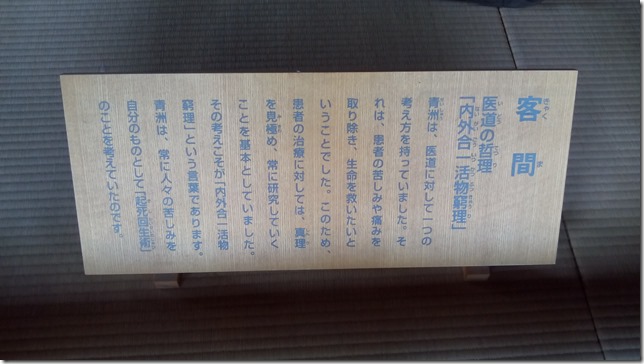 客間
医道の哲理
「内外合一活物窮理」
青洲は、医道に対して一つの
考え方を持っていました。そ
れは、患者の苦しみや痛みを
取り除き、生命を救いたいと
いうことでした。このため、
患者の治療に対しては、真理
を見極め、常に研究していく
ことを基本としていました。
その考えこそが「内外合一活物
窮理」という言葉であります。
青洲は、常に人々の苦しみを
自分のものとして「起死回生術」
のことを考えていたのです。